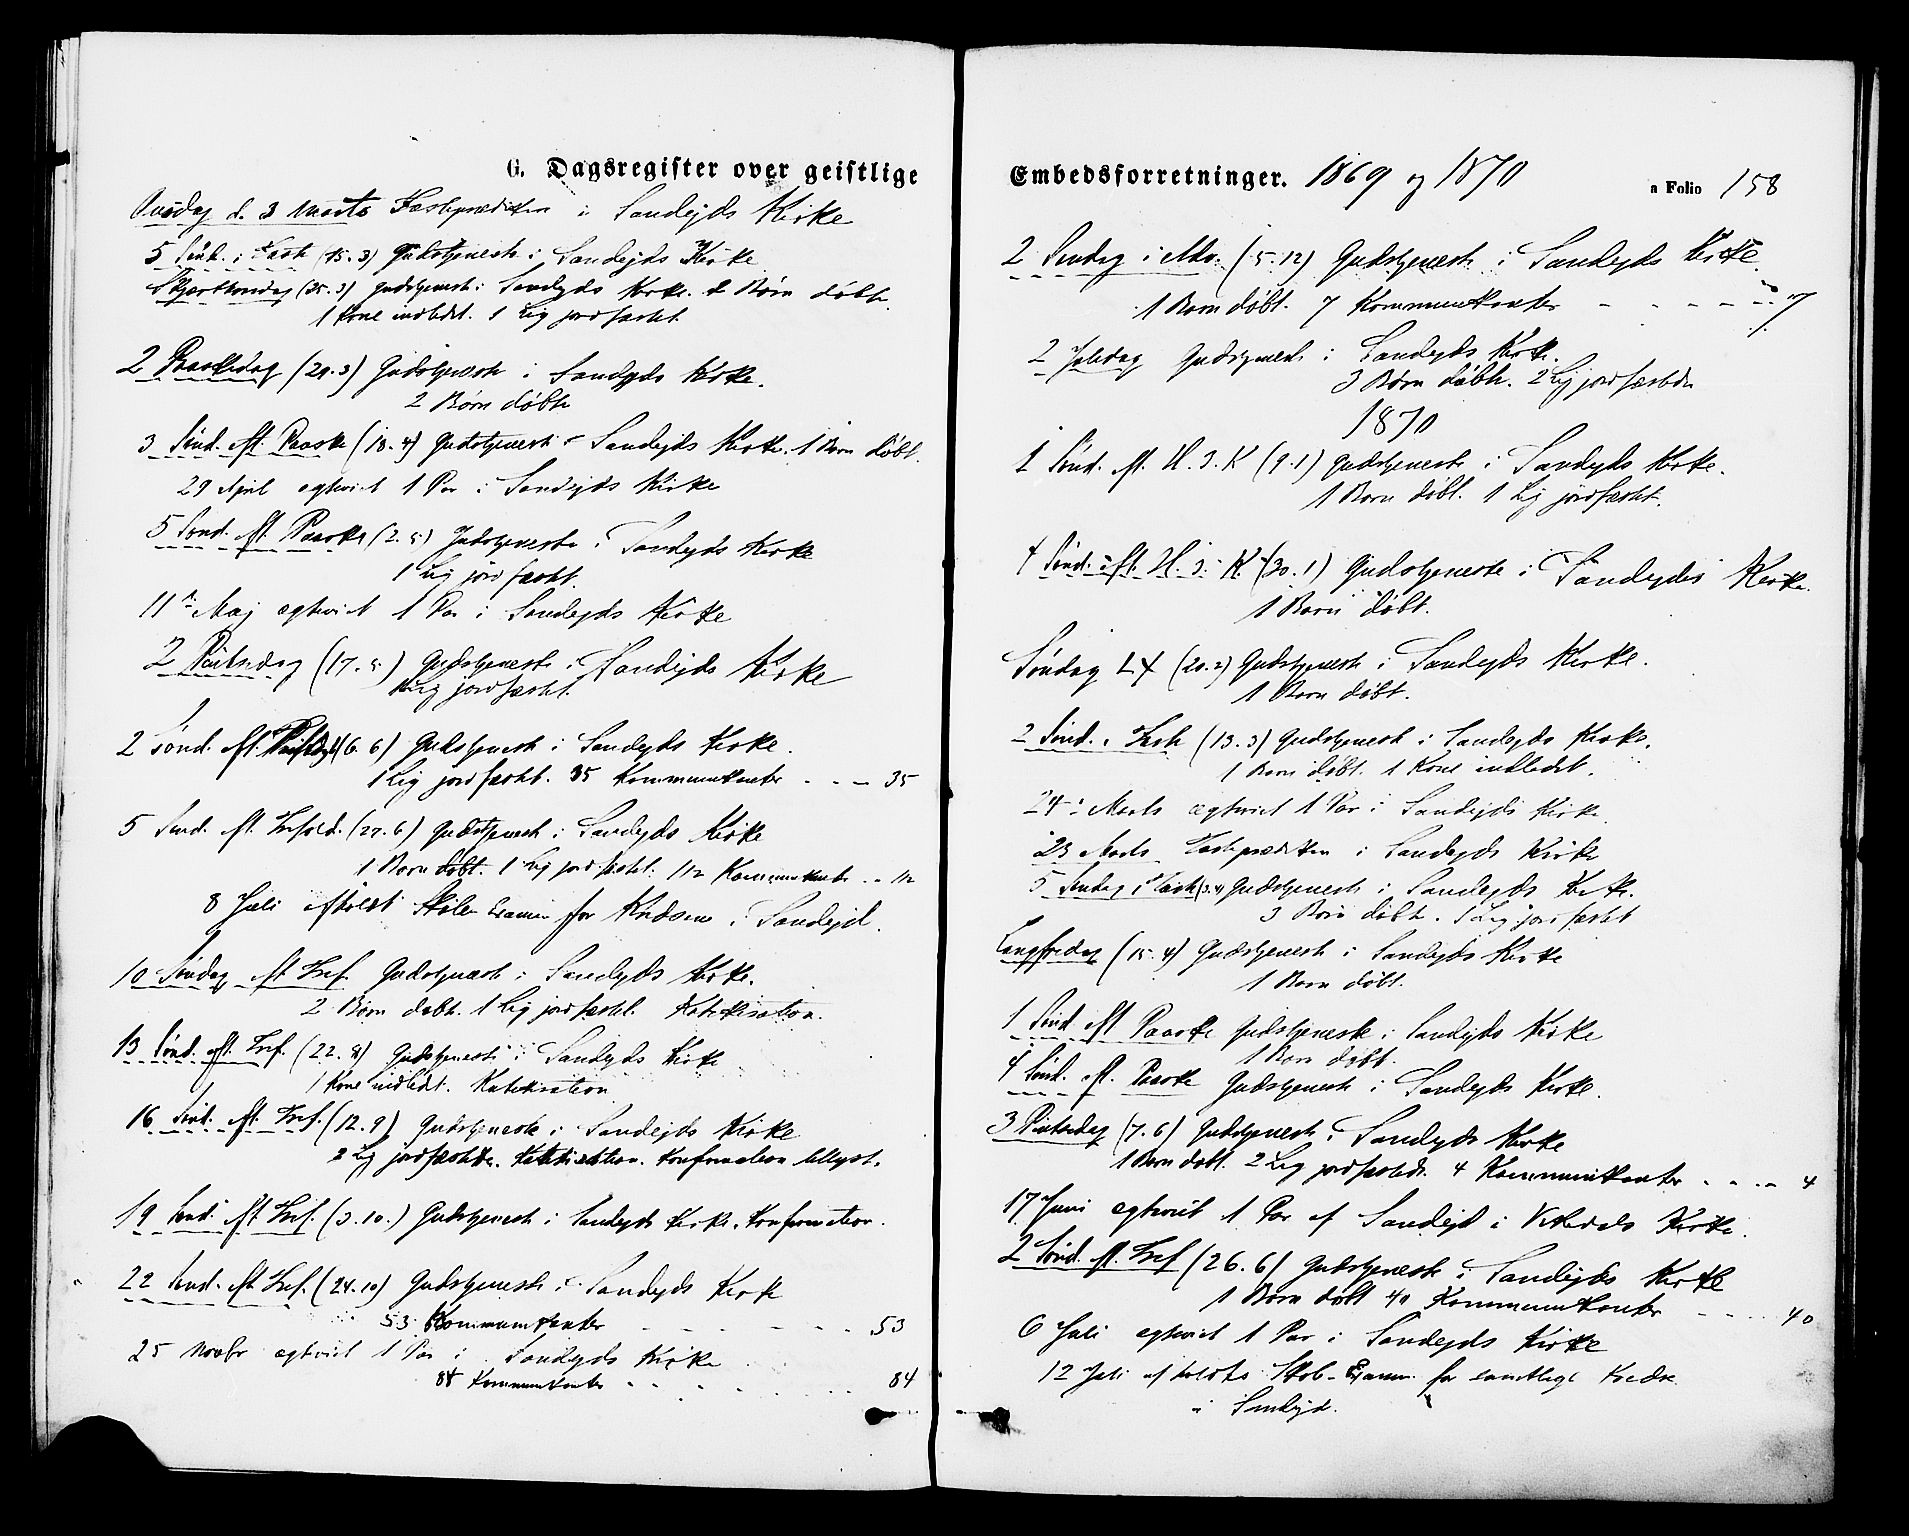 G. Dagsregister over geistlige
Onsdag d. 3 Marts Fasteprædiken i Sandejds Kirke
5 Sönd. i Faste (15.3) Gudstjeneste i Sandejds Kirke
Skjærthorsdag (25.3) Gudstjeneste i Sandejds Kirke. 2 Børn døbte
1 Kone indledet. 1 Lig jordfæstet
2 Paaskedag (29.3) Gudstjeneste i Sandejds Kirke.
2 Børn döbte
3 Sönd. eft. Paaske (18.4) Gudstjeneste i Sandejds Kirke. 1 Barn döbt.
29 April egteviet 1 Par i Sandejds Kirke
5 Sönd. eft. Paaske (2.5) Gudstjeneste i Sandejds Kirke
1 Lig jordfæstet.
11 Maj egteviet 1 Par i Sandejds Kirke
2 Pintsedag (17.5) Gudstjeneste i Sandejds Kirke
1 Lig jordfæstet.
2 Sönd. eft. (6.6) Gudstjeneste i Sandejds Kirke.
1 Lig jordfæstet. 35 Kommunikanter - - - 35
5 Sönd. eft. Trefold. (27.6) Gudstjeneste i Sandejds Kirke
1 Barn döbt. 1 Lig jordfæstet. 112 Kommunikanter .. 112
8 Juli afholdt Skole Examen for Kredsen i Sandejd.
10 Söndag eft Tref. Gudstjeneste i Sandejds Kirke.
2 Børn døbte. 1 Lig jordfæstet. Katekisation.
13 Sönd. eft. Tref. (22.8) Gudstjeneste i Sandejds Kirke
1 Kone indledet. Katekisation
16 Sönd. eft. Tref. (12.9) Gudstjeneste i Sandejds Kirke
2 Lig jordfæstede. Katekisation. Konfirmation tillyst.
19 Sönd. eft Tref. (3.10.) Gudstjeneste i Sandejds Kirke. Konfirmation.
22 Sönd. eft Tref. (24.10) Gudstjeneste i Sandejds Kirke
53 Kommunikanter - - - - - 53
25 Novbr egteviet 1 Par i Sandejds Kirke
84 Kommunikanter - - - - - 84
Embedsforretninger. 1869 og 1870
a Folio 158
2 Søndag i Adv. (5.12) Gudstjeneste i Sandejds Kirke.
1 Barn döbt. 7 Kommunikanter - - - - - 7
2 Juledag Gudstjeneste i Sandejds Kirke.
3 Børn døbte. 2 Lig jordfæstede
1870
1 Sönd. eft. H. 3. K (9.1) Gudstjeneste i Sandejds Kirke.
1 Barn döbt. 1 Lig jordfæstet.
4 Sönd. eft. H. 3. K. (30.1) Gudstjeneste i Sandejds Kirke.
1 Barn döbt.
Söndag LX (20.2) Gudstjeneste i Sandejds Kirke.
1 Barn döbt.
2 Sönd. i Faste (13.3) Gudstjeneste i Sandejds Kirke.
1 Barn döbt. 1 Kone indledet.
24 Marts egteviet 1 Par i Sandejds Kirke.
23 Marts Fasteprædiken i Sandejds Kirke
5 Søndag i Faste (3.4) Gudstjeneste i Sandejds Kirke.
3 Børn döbte. 1 Lig jordfæstet
Langfredag (15.4) Gudstjeneste i Sandejds Kirke
1 Barn döbt.
1 Sönd eft Paaske Gudstjeneste i Sandejds Kirke
1 Barn døbt.
4 Sönd. eft. Paaske Gudstjeneste i Sandejds Kirke.
3 Pintsedag (7.6) Gudstjeneste i Sandejds Kirke
1 Barn døbt. 2 Lig jordfæstede. 4 Kommunikanter - - - - 4
17 Juni egteviet 1 Par af Sandejd i Vikedals Kirke.
2 Sönd. eft. Tref (26.6) Gudstjeneste i Sandejds Kirke
1 Barn döbt 40 Kommunikanter - - - 40
6 Juli egteviet 1 Par i Sandejds Kirke
12 Juli afholdts Skole-Examen for samtlige Kredse
i Sandejd.